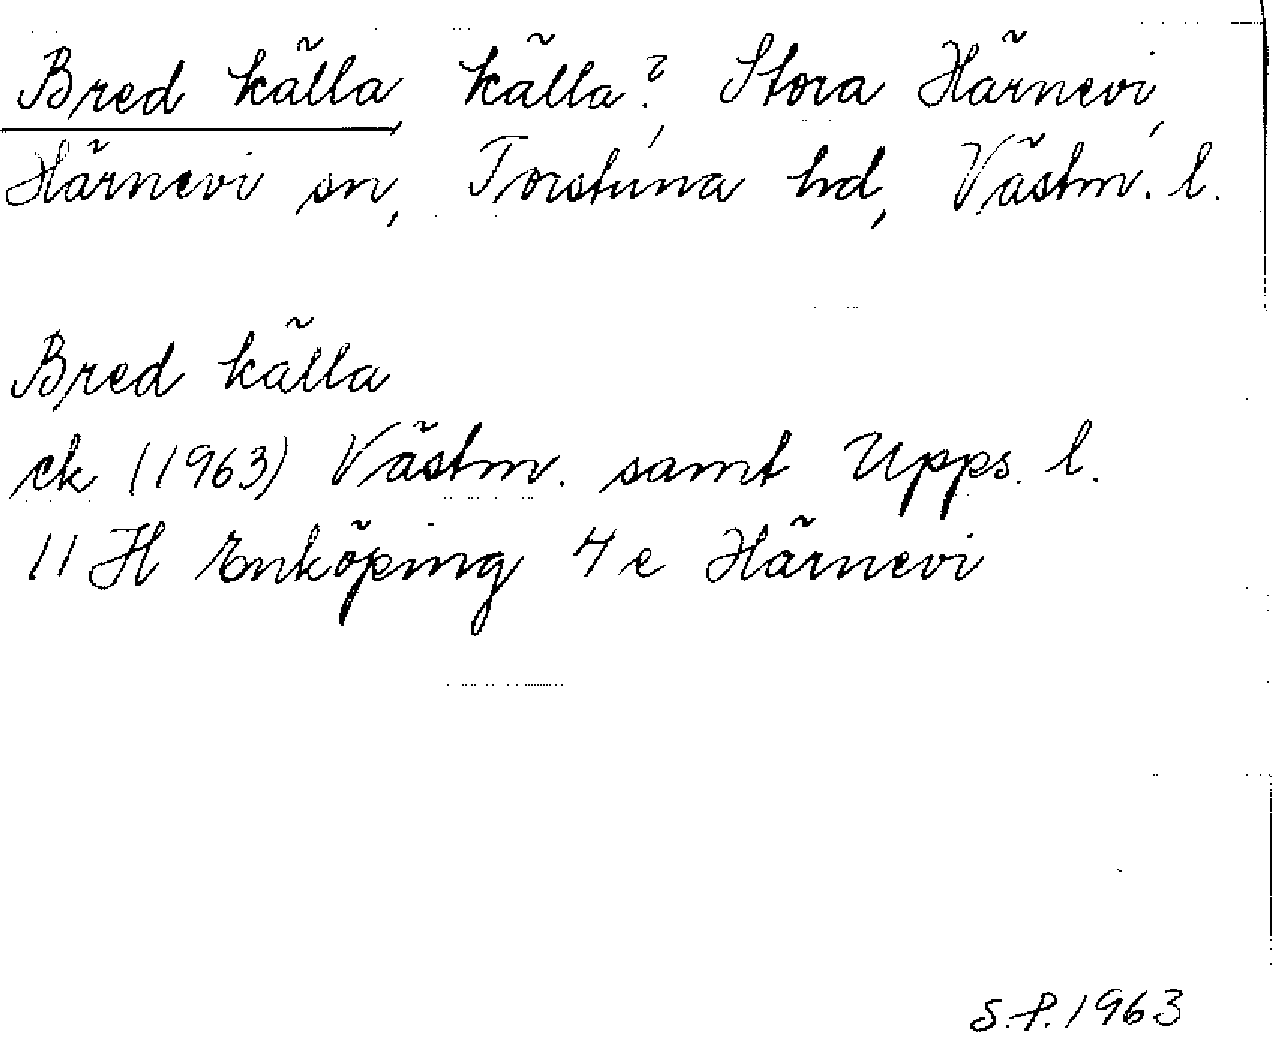 Bred källa, källa?, Stora Härnevi,
Härnevi sn, Torstuna hd, Västm. l.
Bred källa
ek (1963) Västm. samt Upps. l.
11 H Enköping 4 e Härnevi
S.P. 1963